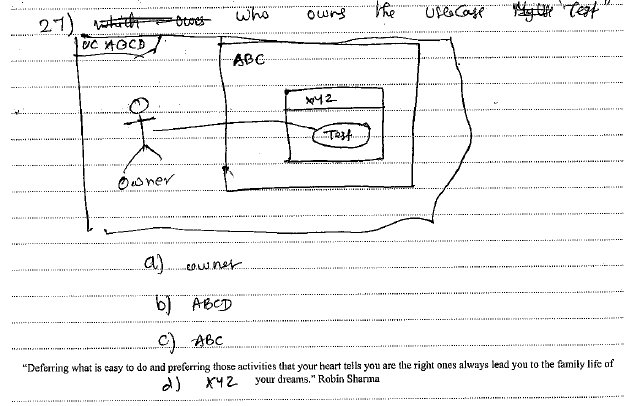 27) who owns the usecase "Test"
UC ABCD
ABC
XYZ
Test
Owner
a) owner
b) ABCD
c) ABC
"Deferring what is easy to do and preferring those activities that your heart tells you are the right ones always lead you to the family life of
d) XYZ your dreams." Robin Sharma